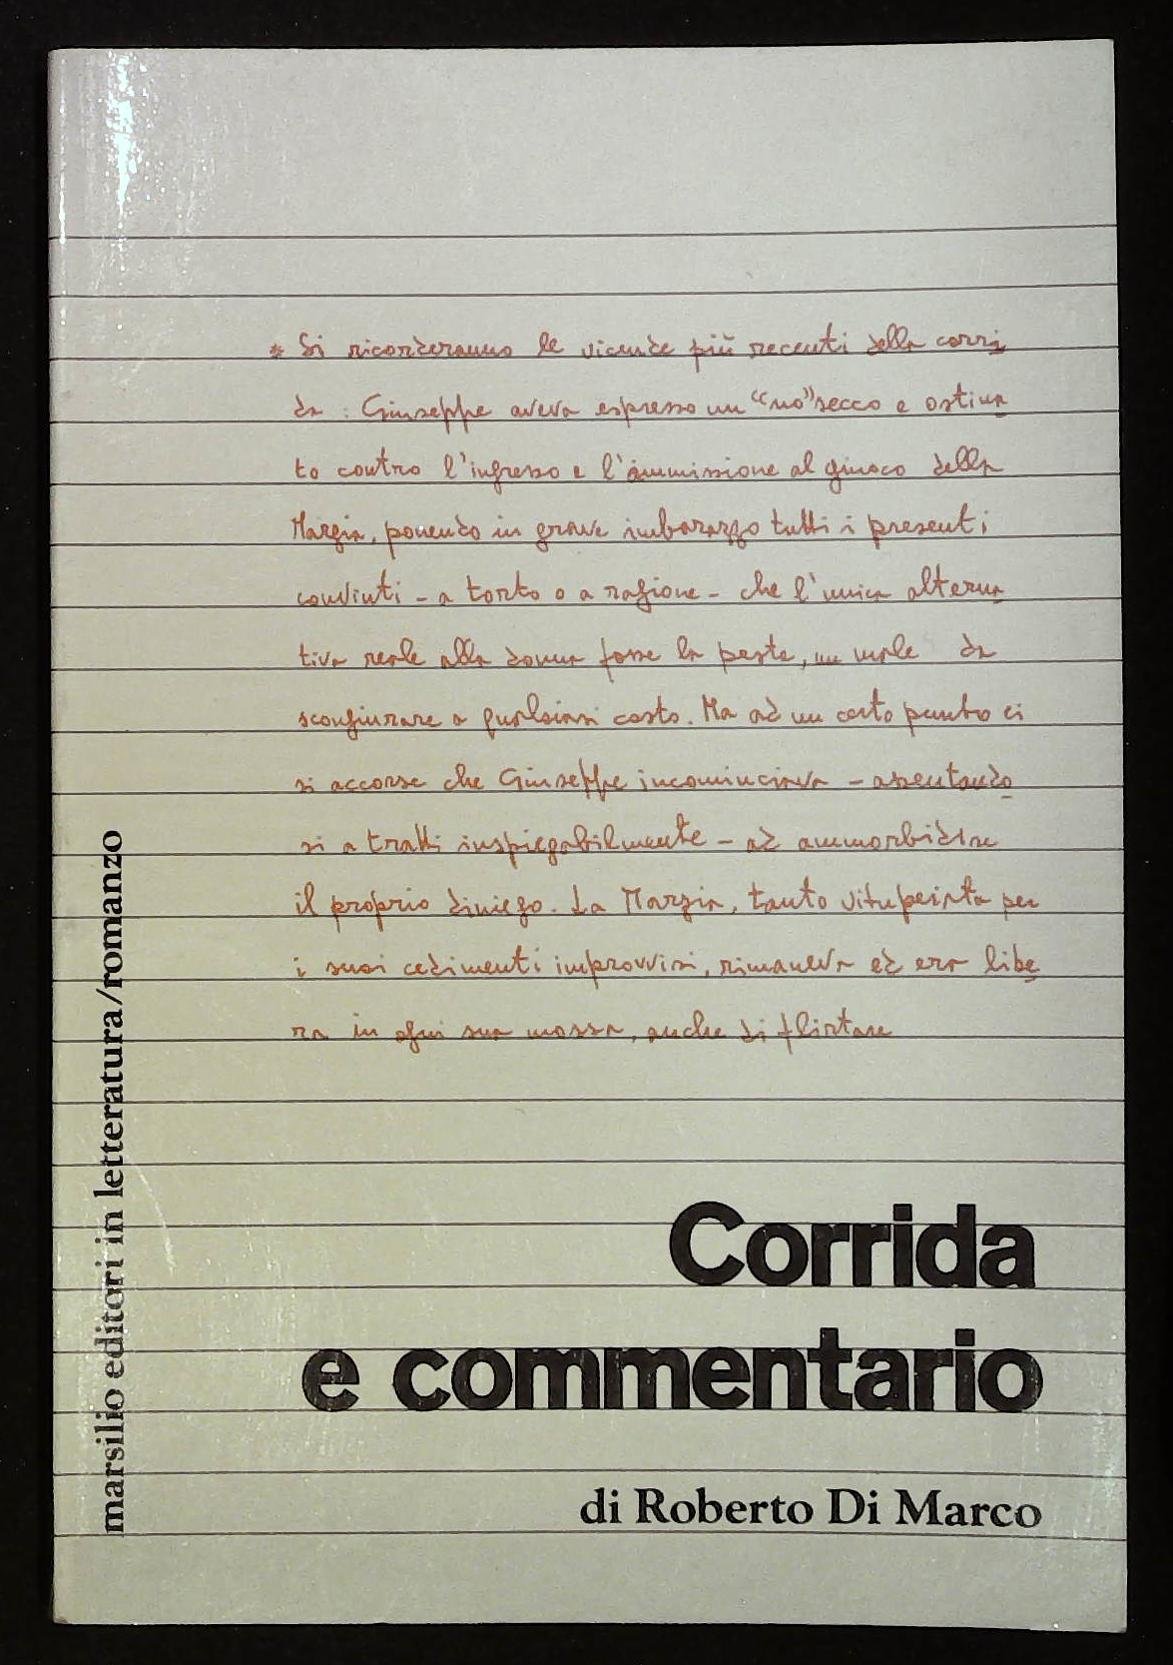 * Si ricorderanno le vicende più recenti della corri
da : Giuseppe aveva espresso un "no" secco e ostina
to contro l'ingresso e l'ammissione al giuoco della
Margia, ponendo in grave imbarazzo tutti i presenti
convinti - a torto o a ragione - che l'unica alterna
tiva reale alla donna fosse la peste, un male da
scongiurare a qualsiasi costo. Ma ad un certo punto ci
si accorse che Giuseppe incominciava - assentando
si a tratti inspiegabilmente - ad ammorbidire
il proprio diniego. La Margia, tanto vituperata per
i suoi cedimenti improvvisi, rimaneva ed era libe
ra in ogni sua mossa, anche di flirtare
Corrida
e commentario
di Roberto Di Marco
marsilio editori in letteratura/romanzo